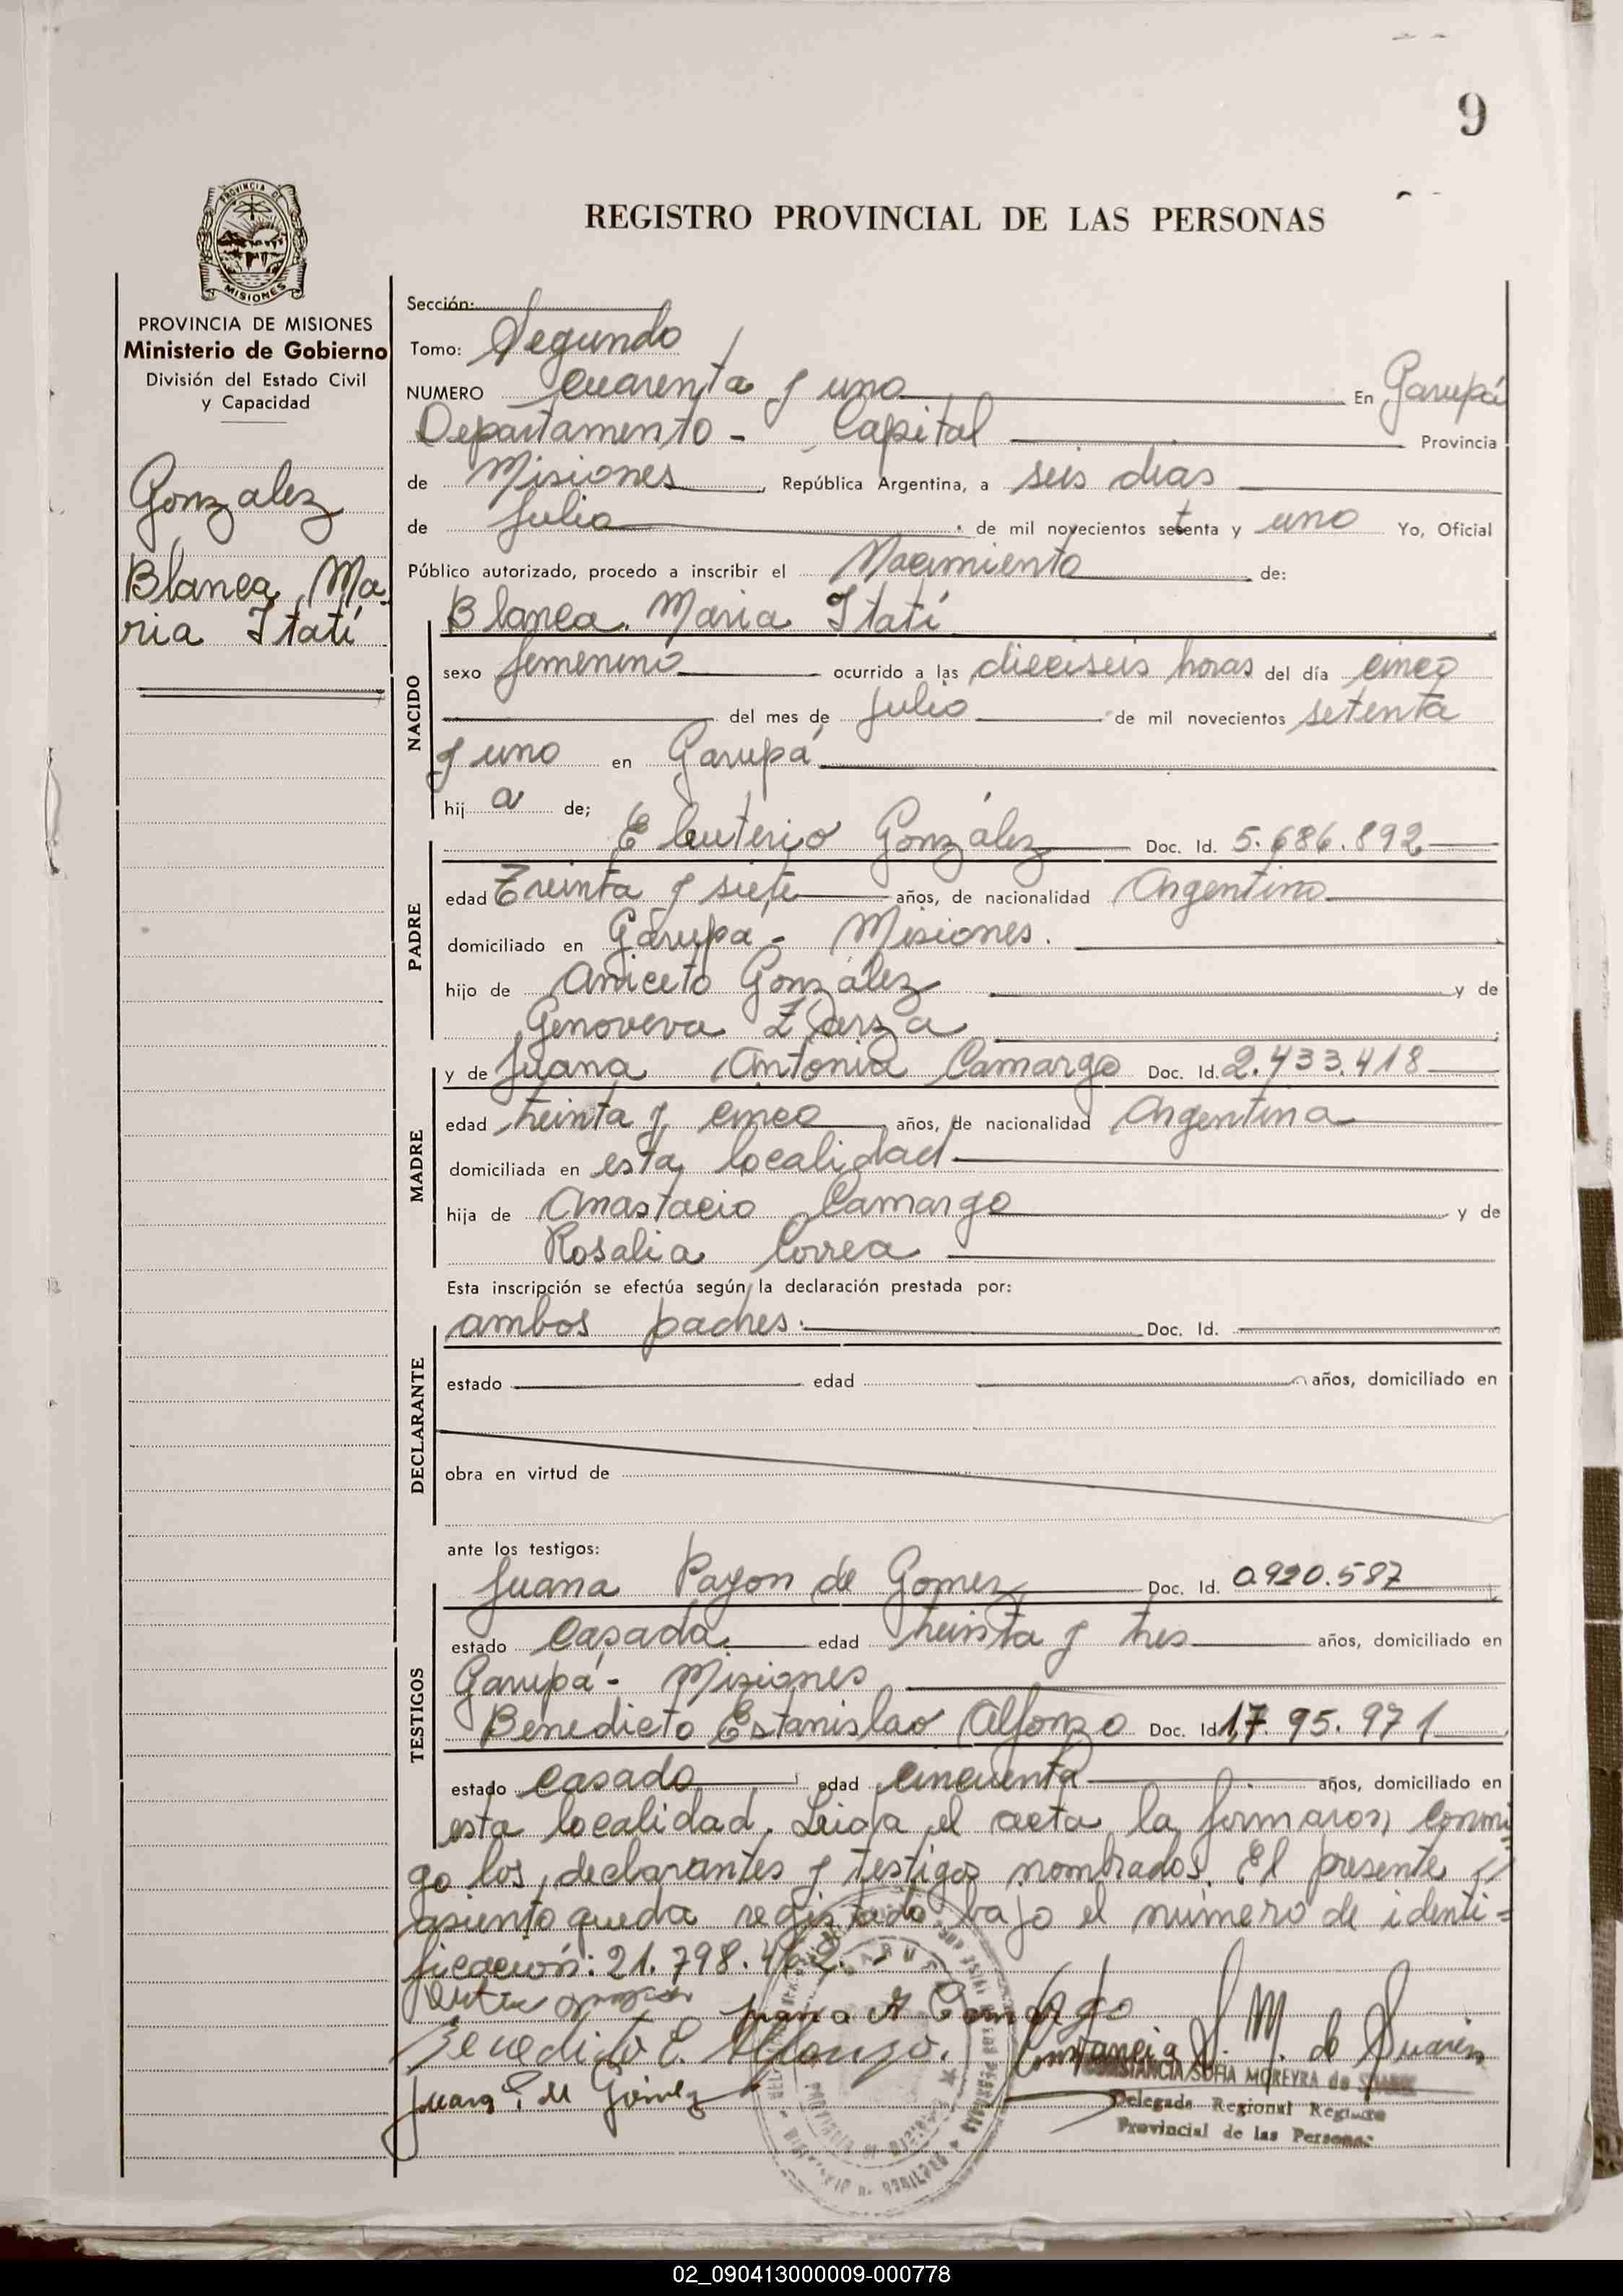 9
REGISTRO PROVINCIAL DE LAS PERSONAS
PROVINCIA DE
MISIONES
PROVINCIA DE MISIONES
Ministerio de Gobierno
División del Estado Civil
y Capacidad
Gonzalez
Blanca Ma
ria Itatí
Sección:
Tomo: Segundo
NUMERO cuarenta y uno En Garupá
Departamento - Capital Provincia
de Misiones, República Argentina, a seis dias
de Julio de mil novecientos setenta y uno Yo, Oficial
Público autorizado, procedo a inscribir el Nacimiento de:
Blanca Maria Itatí
NACIDO
sexo femenino ocurrido a las dieciseis horas del día cinco
del mes de Julio de mil novecientos setenta
y uno en Garupá
hij a de;
PADRE
Eleuterio González Doc. Id. 5.686.892
edad Treinta y siete años, de nacionalidad Argentina
domiciliado en Garupa - Misiones.
hijo de Aniceto González y de
Genoveva Zarza
MADRE
y de Juana Antonia Camargo Doc. Id. 2.433.418
edad treinta y cinco años, de nacionalidad Argentina
domiciliada en esta localidad
hija de Anastacio Camargo y de
Rosalia Correa
Esta inscripción se efectúa según la declaración prestada por:
DECLARANTE
ambos padres. Doc. Id.
estado edad años, domiciliado en
obra en virtud de
ante los testigos:
TESTIGOS
Juana Payon de Gomez Doc. Id. 0.920.587
estado Casada edad treinta y tres años, domiciliado en
Garupá - Misiones
Benedicto Estanislao Alfonzo Doc. Id. 17.95.971
estado casado edad cincuenta años, domiciliado en
esta localidad. Leida el acta la firmaron conmi
go los declarantes y testigos nombrados. El presente
asiento queda registado bajo el número de identi=
ficación: 21.798.462.-
Juana A Camargo
Benedicto E. Alfonzo. Constancia S. M. de Suarez
CONSTANCIA SOFIA MOREYRA de SUAREZ
Juana P. de Gómez
Delegada Regional Registro
Provincial de las Personas
02_090413000009-000778